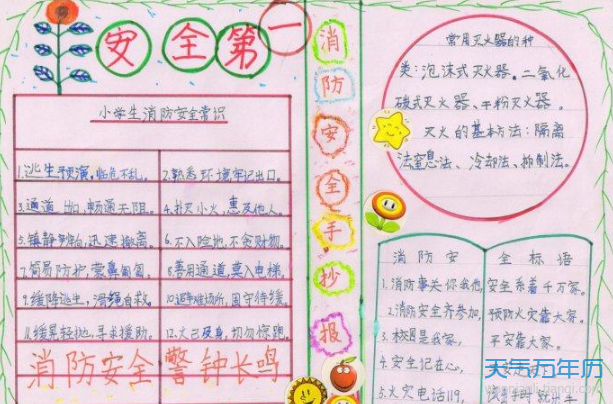 安全第一
小学生消防安全常识
1.逃生预演,临危不乱。
2.熟悉环境,牢记出口。
3.通道出口,畅通无阻。
4.扑灭小火,惠及他人。
5.镇静辨向,迅速撤离。
6.不入险地,不贪财物。
7.简易防护,蒙鼻匍匐。
8.善用通道,莫入电梯。
9.缓降逃生,滑绳自救。
10.避难场所,固守待援。
11.缓晃轻抛,寻求援助。
12.火已及身,切勿惊跑。
消防安全 警钟长鸣
消防安全手抄报
常用灭火器的种
类:泡沫式灭火器。二氧化
碳式灭火器、干粉灭火器。
灭火的基本方法:隔离
法窒息法、冷却法、抑制法。
消防安全标语
1.消防事关你我他,安全系着千万家。
2.消防安全齐参加,预防火灾靠大家。
3.校园是我家,平安靠大家。
4.安全记在心,
5.火灾电话119,
天气万年历
wannianli.tianqi.com